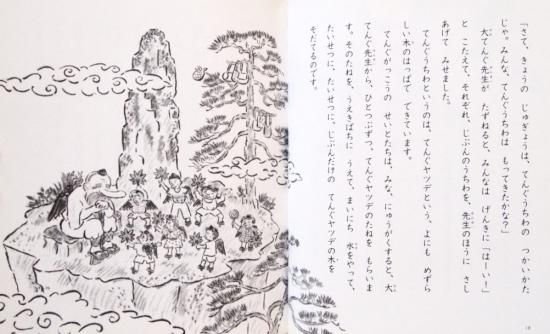 「さて、きょうの じゅぎょうは、てんぐうちわの つかいかた
じゃ。みんな、てんぐうちわは もってきたかな？」
大てんぐ先生が たずねると、みんなは げんきに「はーい！」
と こたえて、それぞれ、じぶんのうちわを、先生のほうに さし
あげて みせました。
てんぐうちわというのは、てんぐヤツデという、よにも めずら
しい木のはっぱで できています。
てんぐがっこうの せいとたちは、みな、にゅうがくすると、大
てんぐ先生から、ひとつぶずつ、てんぐヤツデのたねを もらいま
す。そのたねを、うえきばちに うえて、まいにち 水をやって、
たいせつに、たいせつに、じぶんだけの てんぐヤツデの木を
そだてるのです。